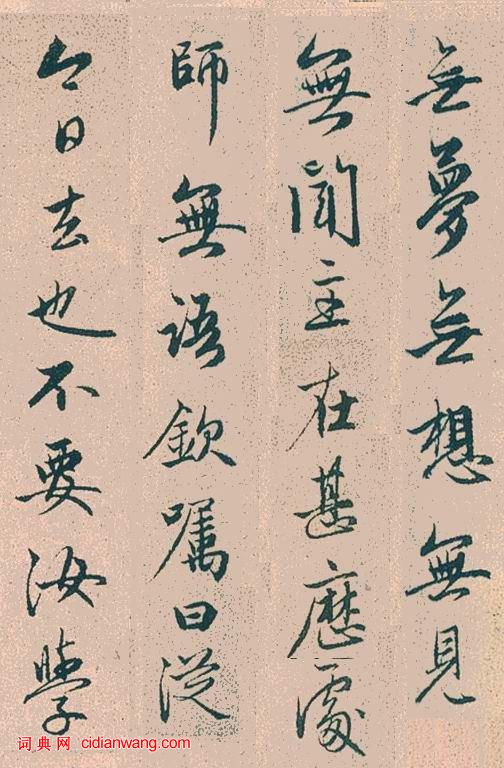 無夢無想無見
無聞主在甚麼處
師無語欽囑曰從
今日去也不要汝學
词典网 cidianwang.com